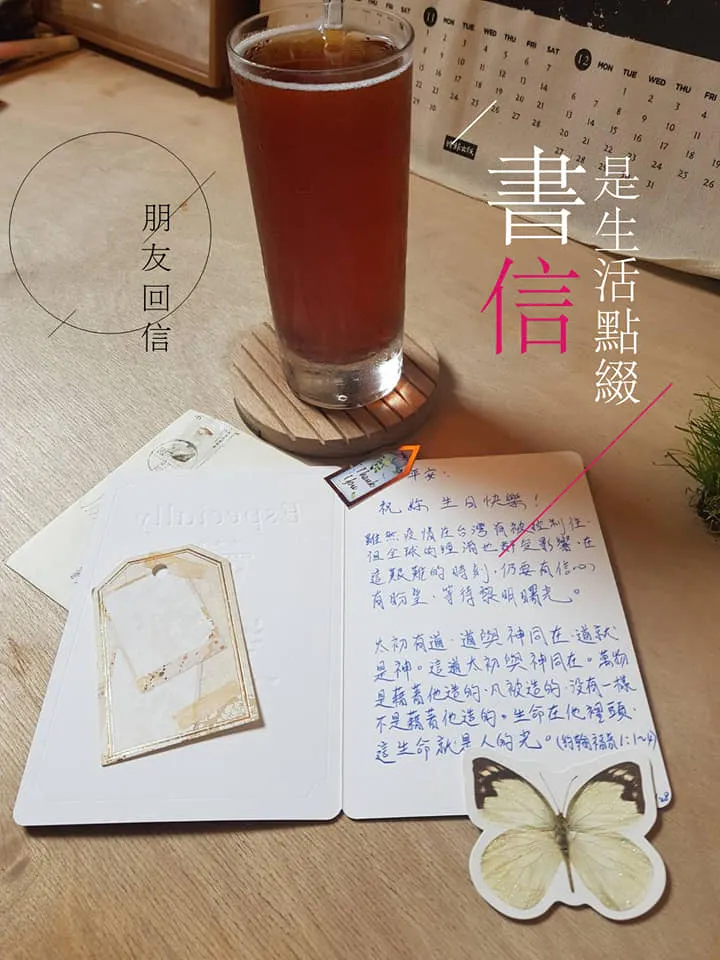 書信
是生活點綴
朋友回信
11 MON TUE WED THU FRI SAT
12 MON TUE WED THU FRI
Especially
Thank
You
平安:
祝 妳 生日快樂!
雖然疫情在台灣有被控制住,
但全球的經濟也都受影響,在
這艱難的時刻,仍要有信心,
有盼望,等待黎明曙光。
太初有道,道與神同在,道就
是神。這道太初與神同在。萬物
是藉著他造的,凡被造的,沒有一樣
不是藉著他造的。生命在他裡頭,
這生命就是人的光。(約翰福音1:1~4)